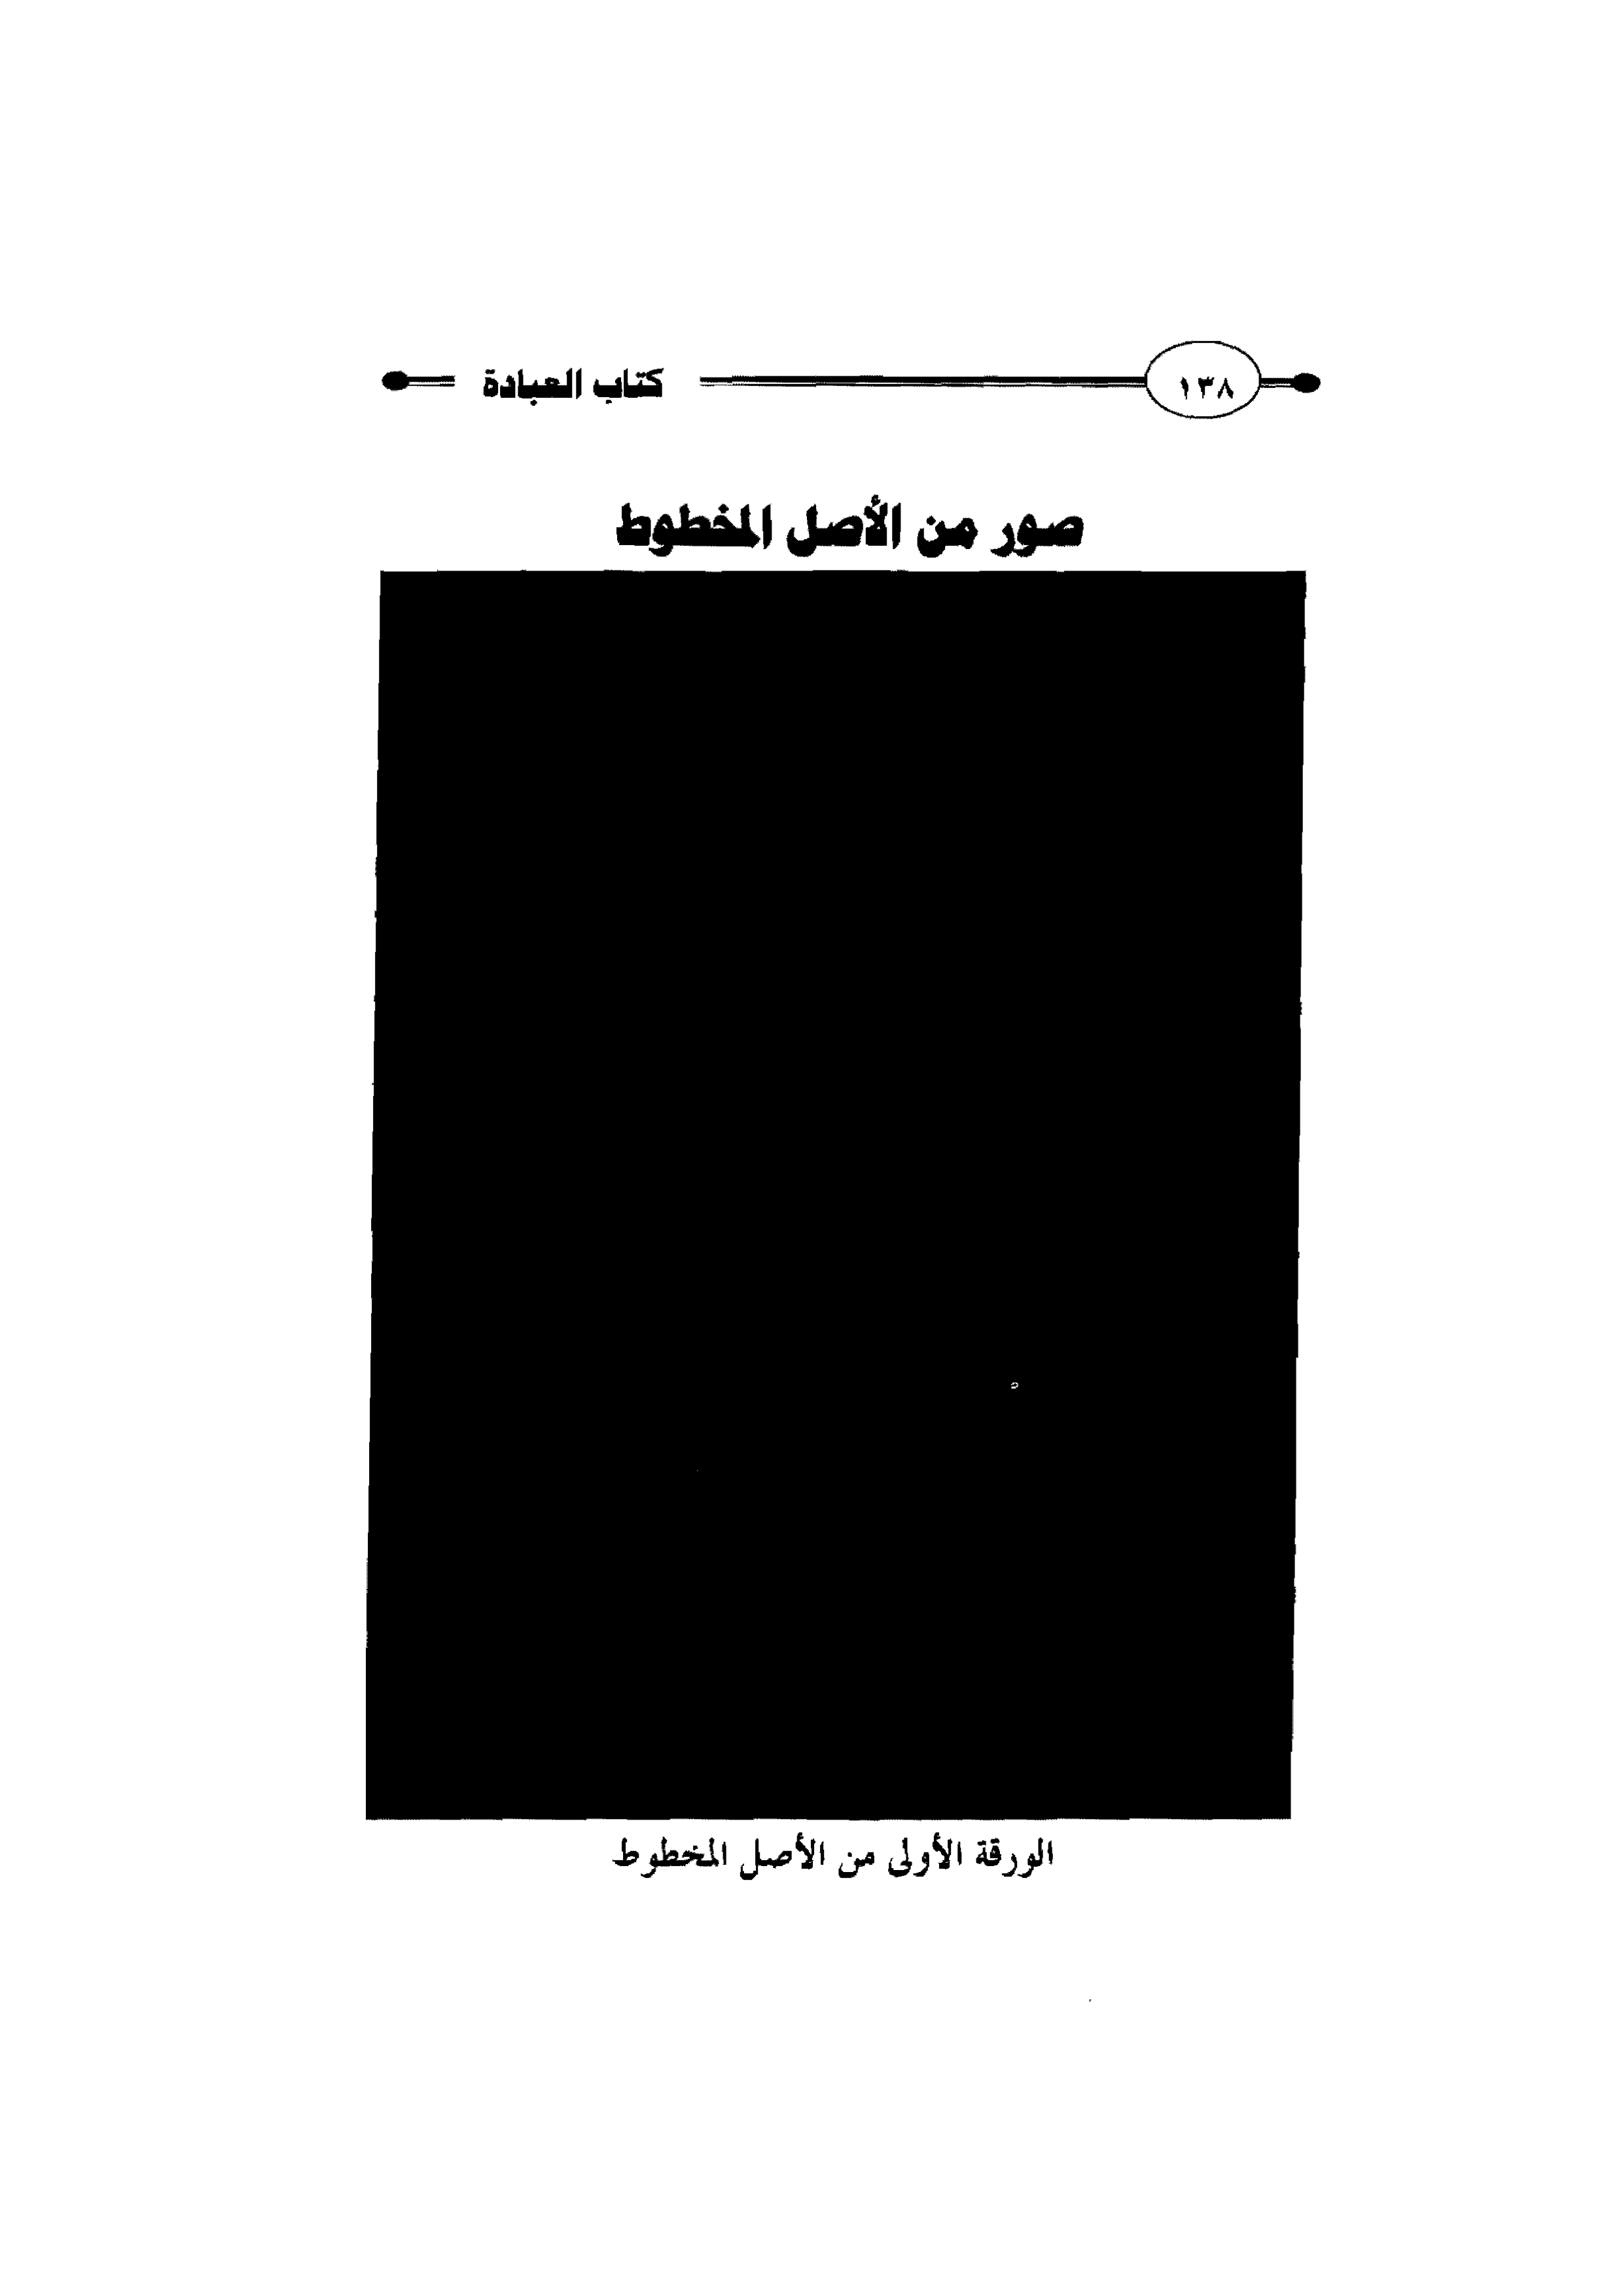 ١٣٨ كتاب العبادة
صور من الأصل المخطوط
الورقة الأولى من الأصل المخطوط